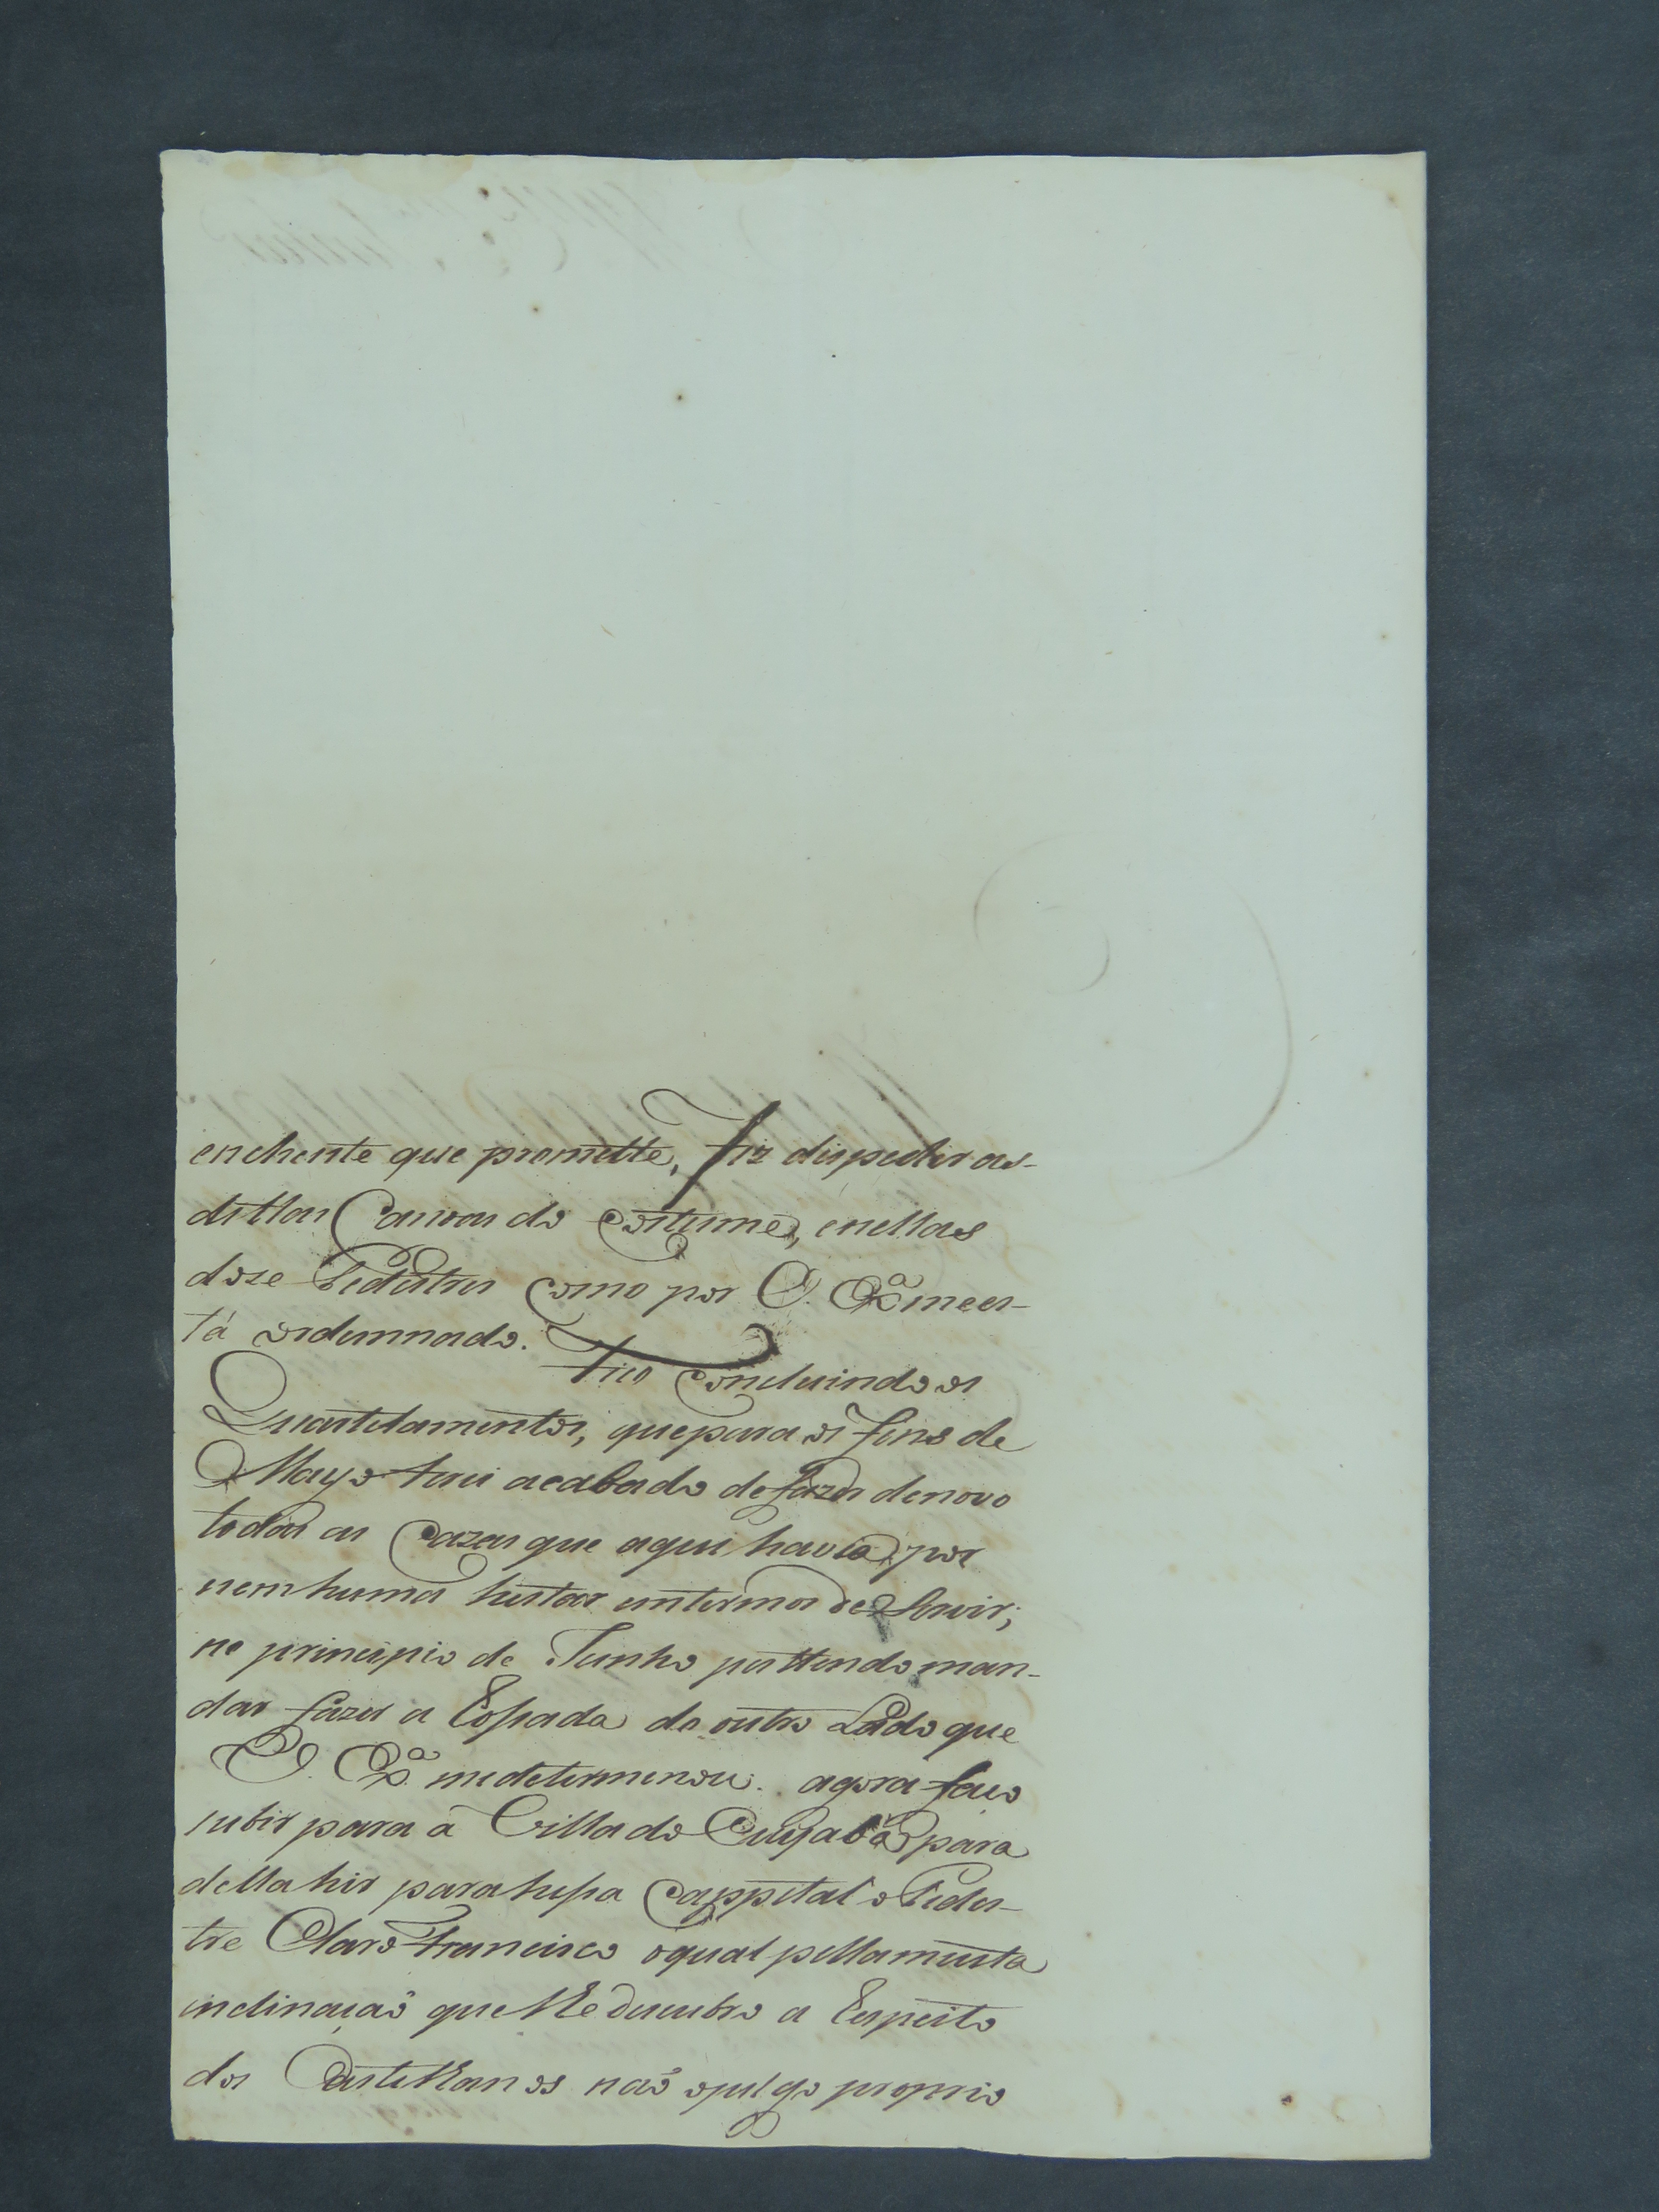 enchente que promette, Fiz dispedir as-
dittas Canoas do costume, enellas
doze Pedestres como por V. Exª mees-
tá ordennado. Fico concluindo os
Quartelamentos, quepara os fins de
Mayo terei acabado defazer denovo
todas as Cazas que aqui havia, por
nemhuma histar emtermos de Servir;
no principio de Junho perttendo man-
dar fazer a Estada do outro Lado que
V. Exª medetermenou. agora faço
subir para á Villa do Cuyabá para
della hir para hessa Cappital o Pedes-
tre Claro Francisco oqual pellamuita
inclinação que lhe descubro a Respeito
dos Castelhanos não ojulgo proprio